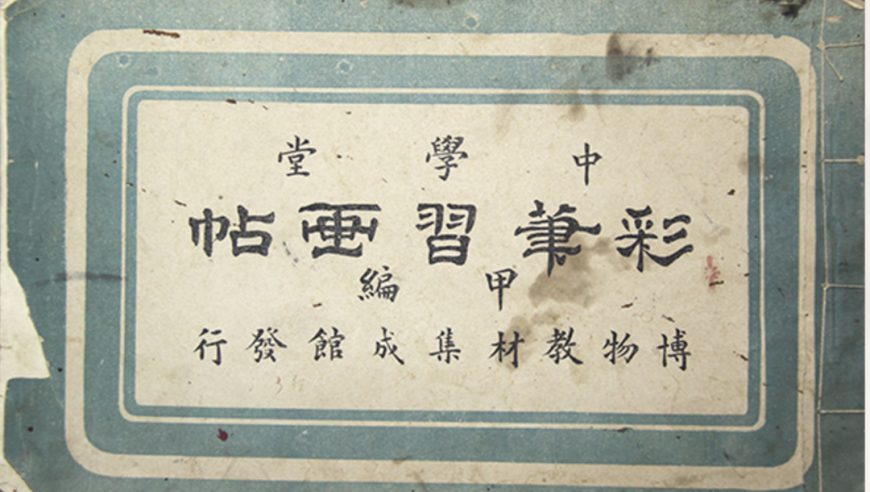 中學堂
彩筆習画帖
甲編
博物教材集成館發行